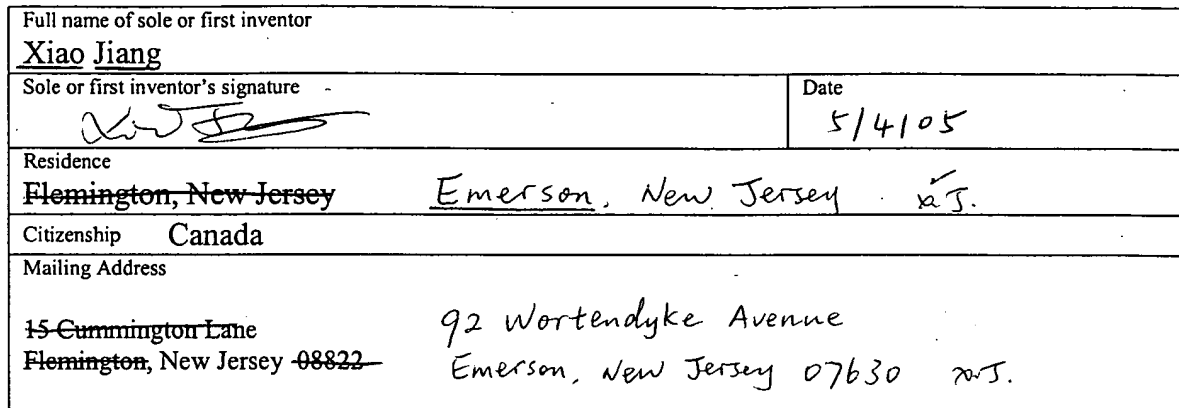 Full name of sole or first inventor
Xiao Jiang
Sole or first inventor's signature
Date
5/4/05
Residence
Flemington, New Jersey Emerson, New Jersey X.J.
Citizenship Canada
Mailing Address
15 Cummington Lane 92 Wortendyke Avenue
Flemington, New Jersey 08822 Emerson, New Jersey 07630 X.J.